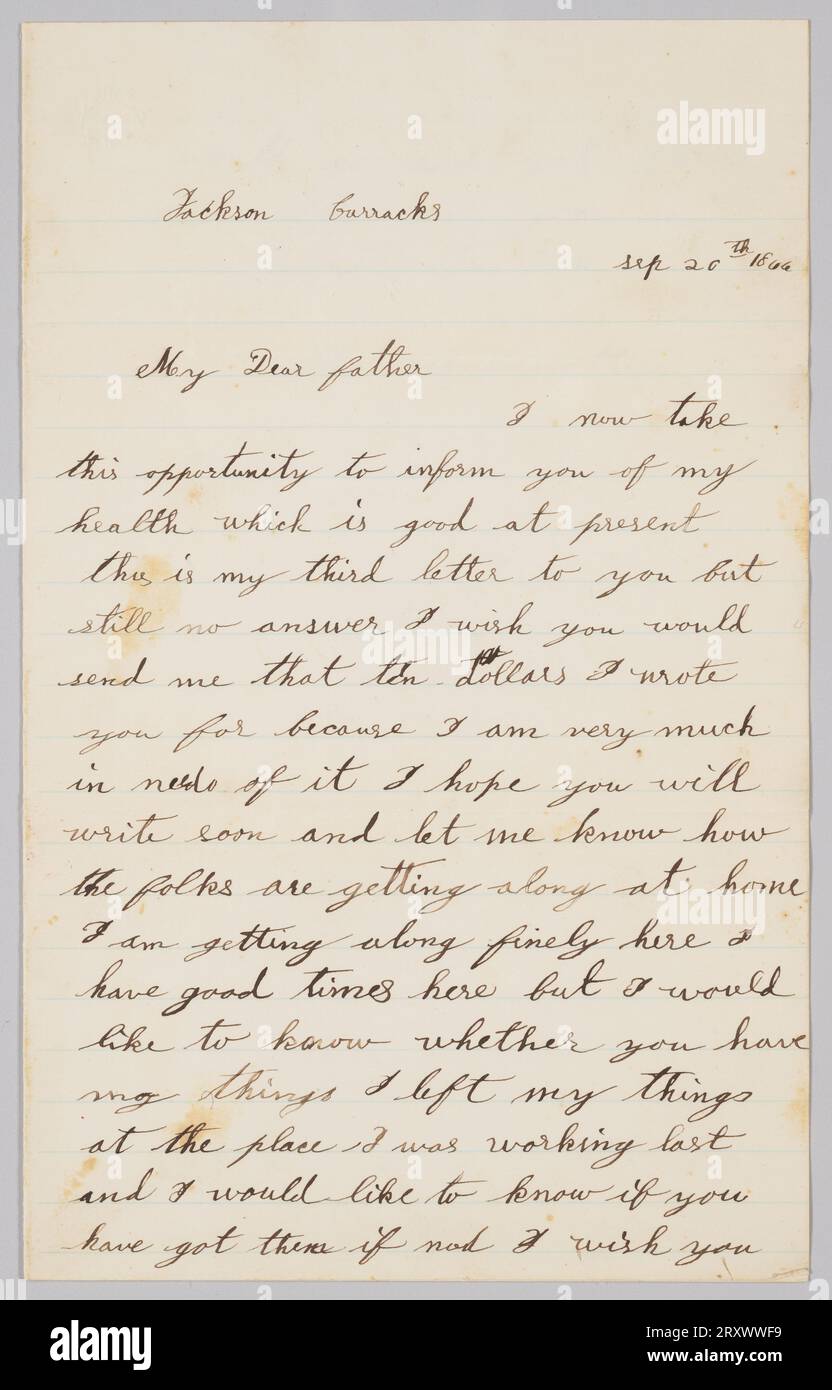 Jackson barracks
sep 20th 1866
My Dear father
I now take
this opportunity to inform you of my
health which is good at present
this is my third letter to you but
still no answer I wish you would
send me that ten dollars I wrote
you for because I am very much
in nedo of it I hope you will
write soon and let me know how
the folks are getting along at home
I am getting along finely here I
have good times here but I would
like to know whether you have
my things I left my things
at the place I was working last
and I would like to know if you
have got them if nod I wish you
alamy
Image ID: 2RXWWF9
www.alamy.com